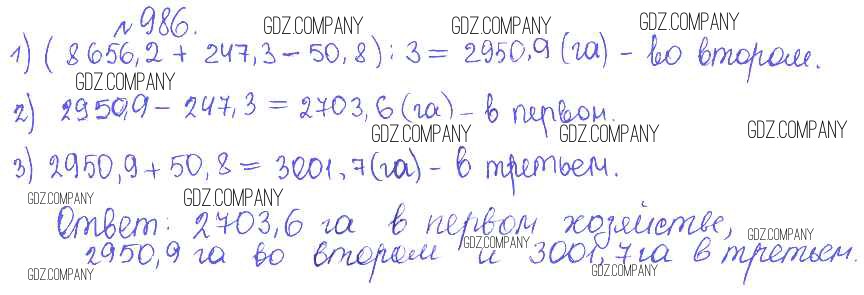 № 986.
GDZ.COMPANY GDZ.COMPANY GDZ.COMPANY
1) (8656,2 + 247,3 - 50,8) : 3 = 2950,9 (га) - во втором.
GDZ.COMPANY
2) 2950,9 - 247,3 = 2703,6 (га) - в первом.
GDZ.COMPANY GDZ.COMPANY GDZ.COMPANY
3) 2950,9 + 50,8 = 3001,7 (га) - в третьем.
GDZ.COMPANY GDZ.COMPANY
Ответ: 2703,6 га в первом хозяйстве,
GDZ.COMPANY GDZ.COMPANY
2950,9 га во втором и 3001,7 га в третьем.
GDZ.COMPANY GDZ.COMPANY